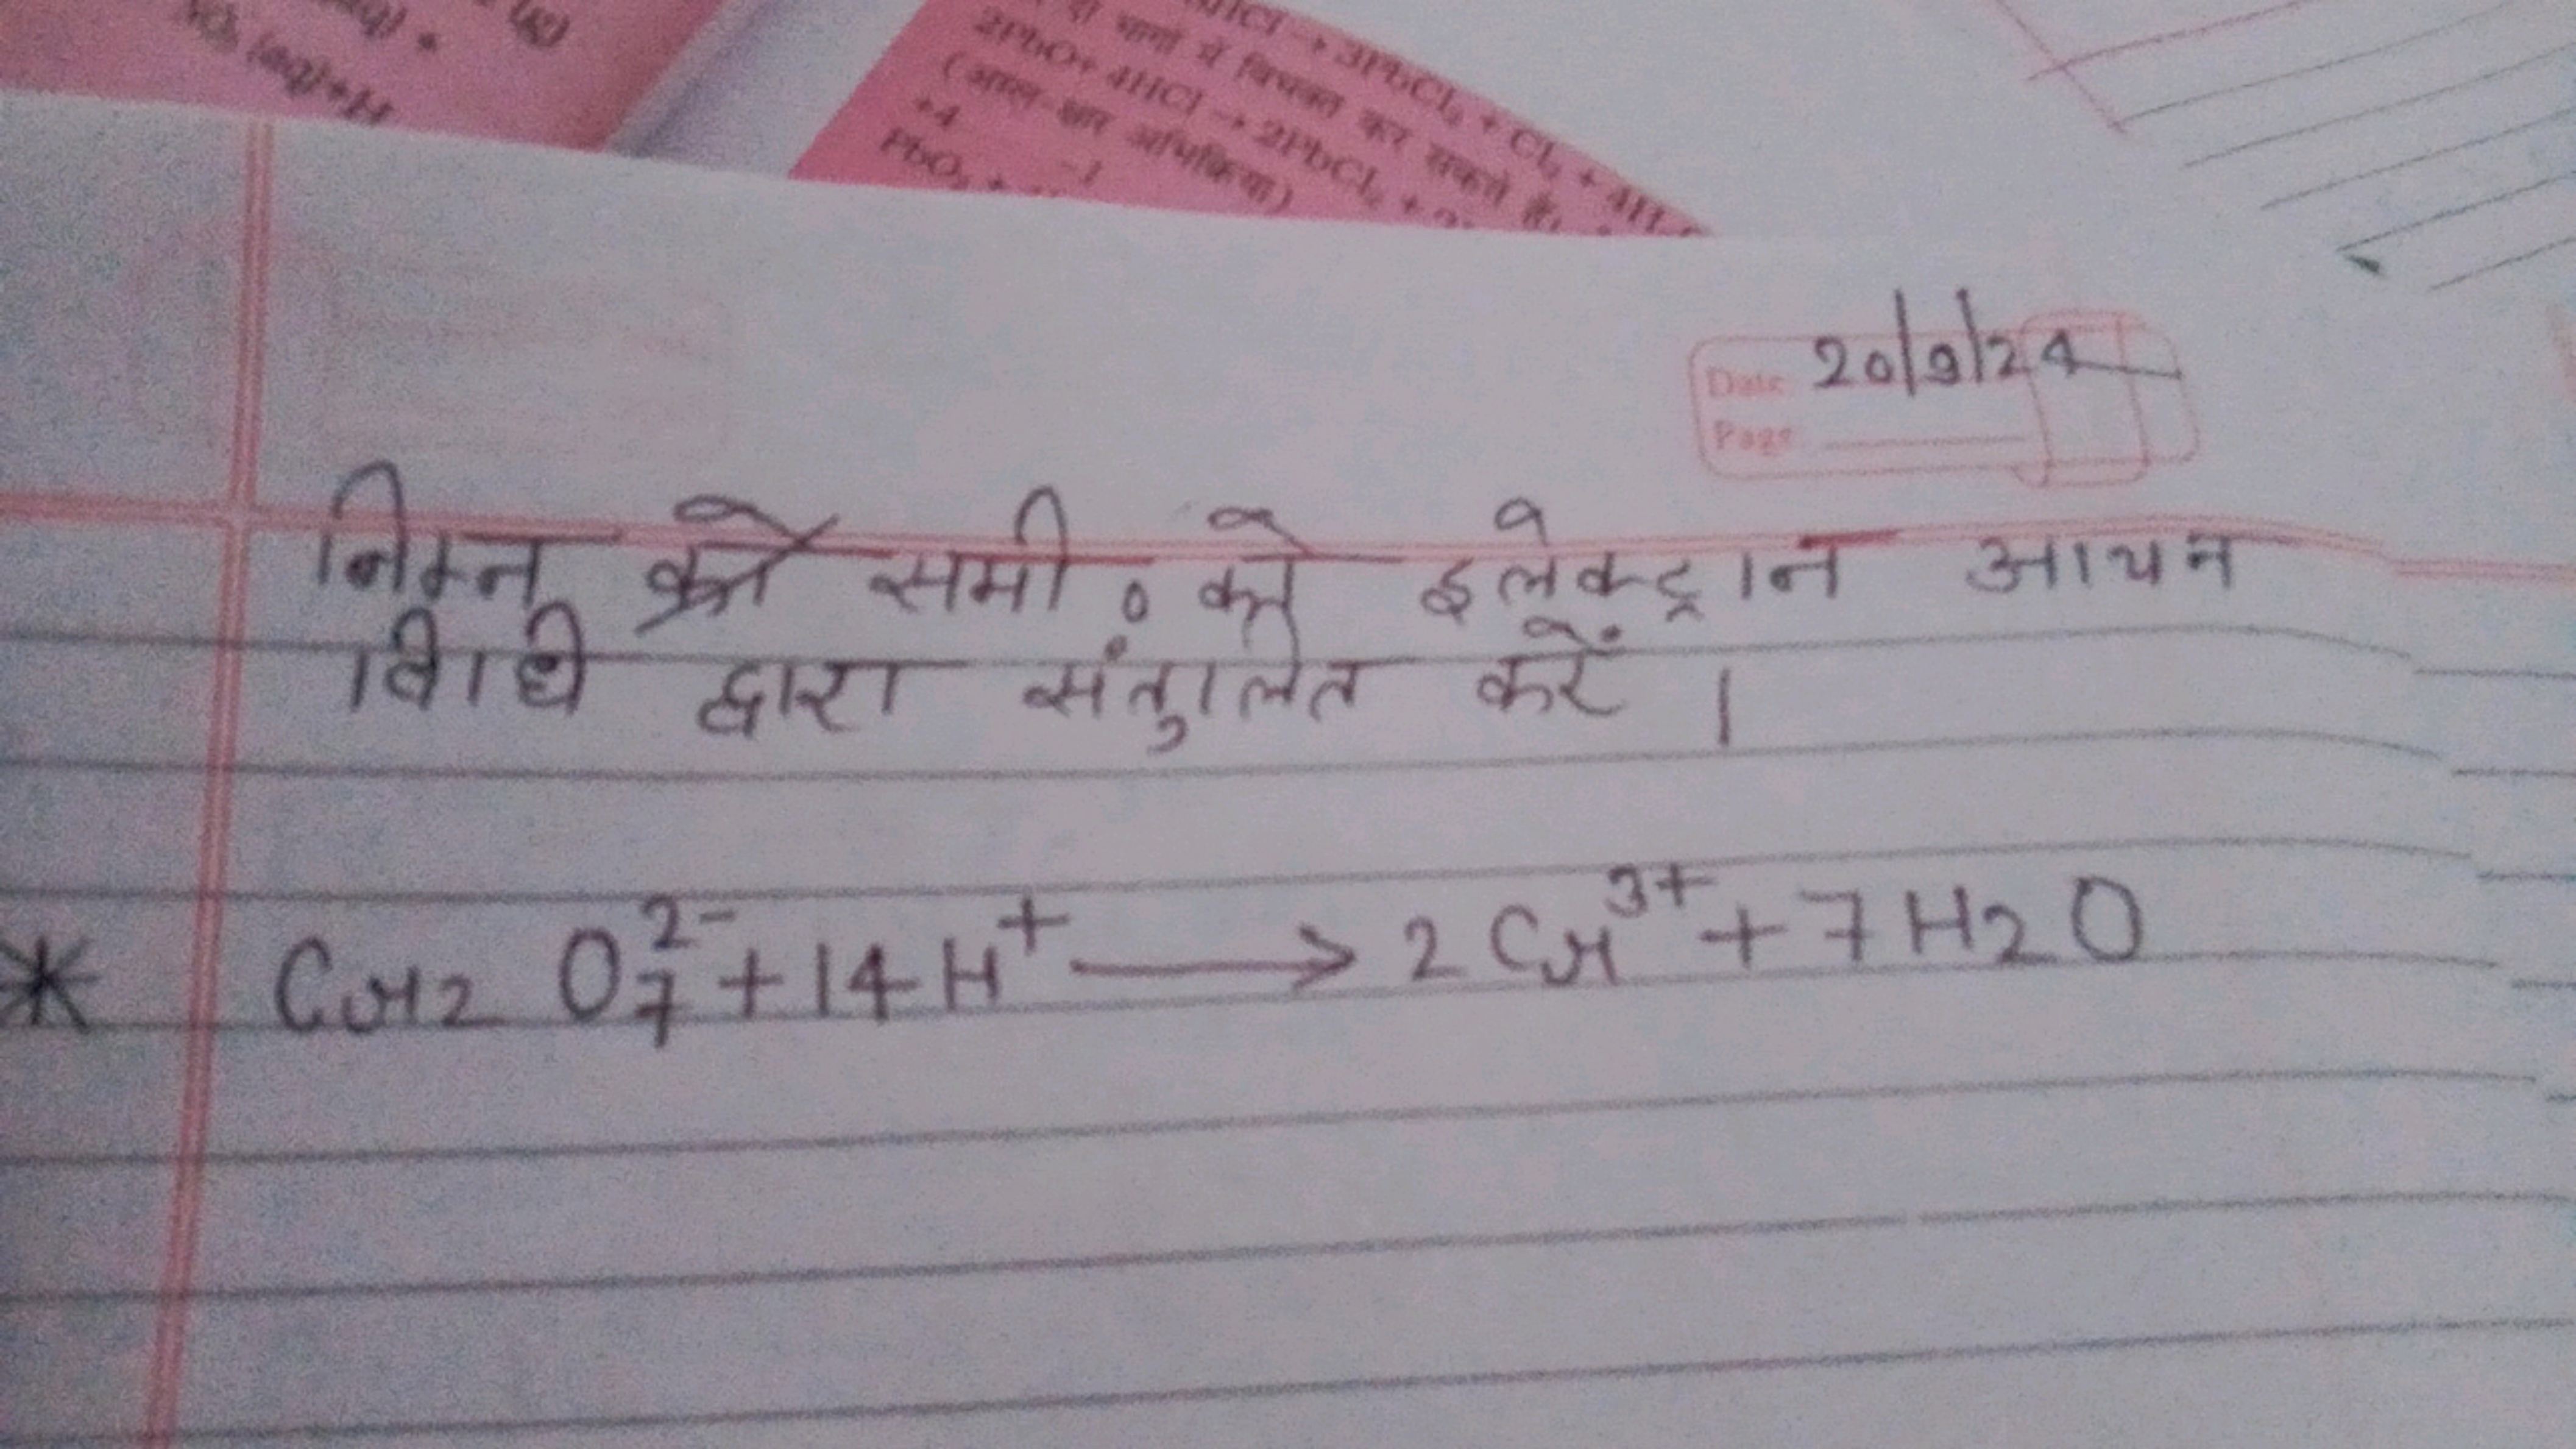 HCl → 3PbCl₂ + Cl₂ + 4H
दो भागों में विभक्त कर सकते हैं।
2PbO + 4HCl → 2PbCl₂ +
(अम्ल-क्षार अभिक्रिया)
+4 -1
PbO₂ +
(aq) +
(aq)+H
Date 20/9/24
Page
निम्न समी० को इलेक्ट्रान आयन
विधि द्वारा संतुलित करें ।
* Cr2 O₇²⁻ + 14H⁺ ⟶ 2Cr³⁺ + 7H2O